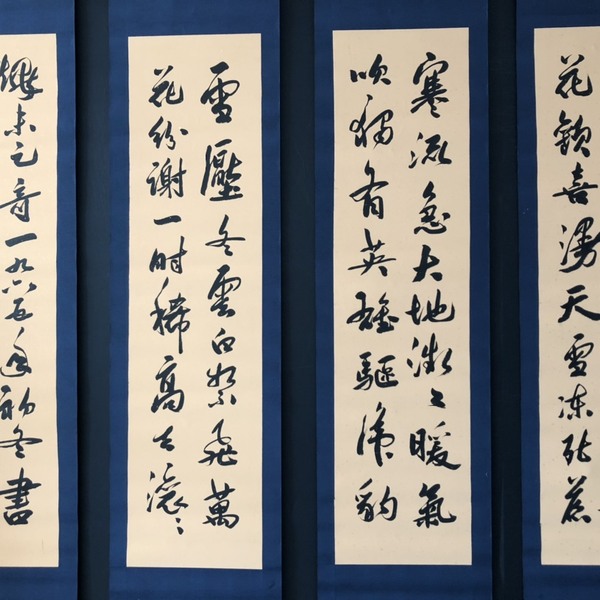 雪壓冬雲白絮飛萬
花紛謝一時稀高天滾〻
寒流急大地微〻暖氣
吹獨有英雄驅虎豹
花歡喜漫天雪凍死蒼
蠅未足奇一九六五年初冬書